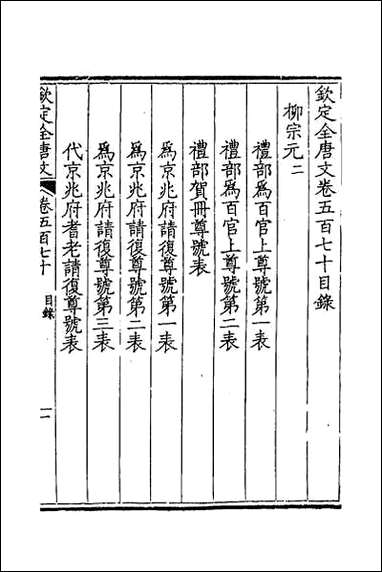 欽定全唐文卷五百七十目錄
柳宗元二
禮部爲百官上尊號第一表
禮部爲百官上尊號第二表
禮部賀冊尊號表
爲京兆府請復尊號第一表
爲京兆府請復尊號第二表
爲京兆府請復尊號第三表
代京兆府耆老請復尊號表
欽定全唐文
卷五百七十
目錄
一